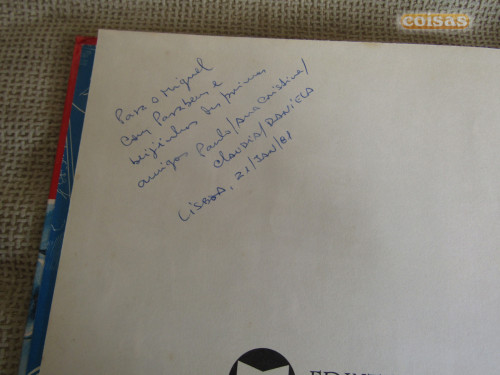 coisas
Para o Miguel
com Parabens e
beijinhos dos primos
amigos Paulo/Ana Cristina/
Claudia/Daniela
Lisboa, 21/JAN/81